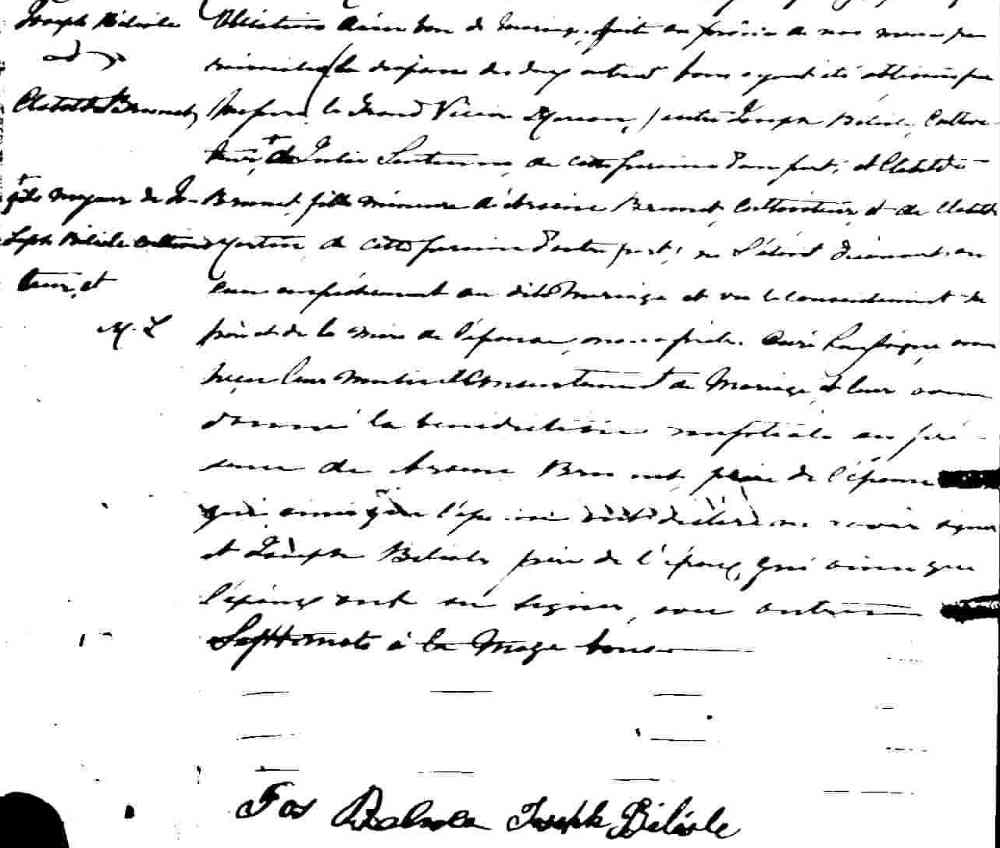 Joseph Bélisle
et
Clotilde Brunet
fils mayeur de Jo-
seph Bélisle cultiva
teur, et
M. L.
de mariage, faite au prône de nos messes pa
la dispense des deux autres bans ayant été obtenue par
le Grand Vicaire entre Joseph Bélisle, Cultiva-
teur, de Julie de cette paroisse d'une part; et Clotilde
Brunet, fille mineure d'Arsène Brunet Cultivateur, et de Clotilde
de cette paroisse d'autre part; ne s'étant découvert au
cun empêchement au dit Mariage et vu le consentement du
père et de la mère de l'épouse, nous prêtre Curé soussigné, avons
reçu leur mutuel Consentement de Mariage et leur avons
donné la bénédiction nuptiale en pré-
sence de Arsène Brunet, père de l'épouse
qui ainsi que l'épouse ont déclaré ne savoir signer
et Joseph Bélisle père de l'époux, qui ainsi que
l'époux ont su signer, avec nous
Sept mots à la Marge bons
Jos Belisle Joseph Bélisle